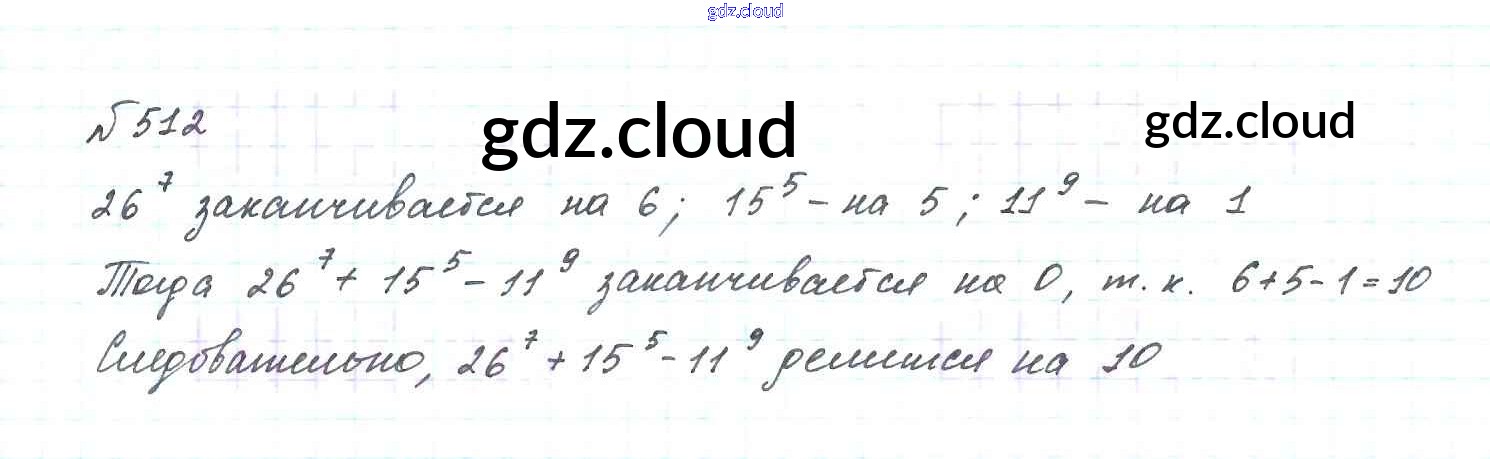 gdz.cloud
№ 512
gdz.cloud
gdz.cloud
26⁷ заканчивается на 6; 15⁵ – на 5; 11⁹ – на 1
Тогда 26⁷ + 15⁵ – 11⁹ заканчивается на 0, т. к. 6+5-1=10
Следовательно, 26⁷ + 15⁵ – 11⁹ делится на 10